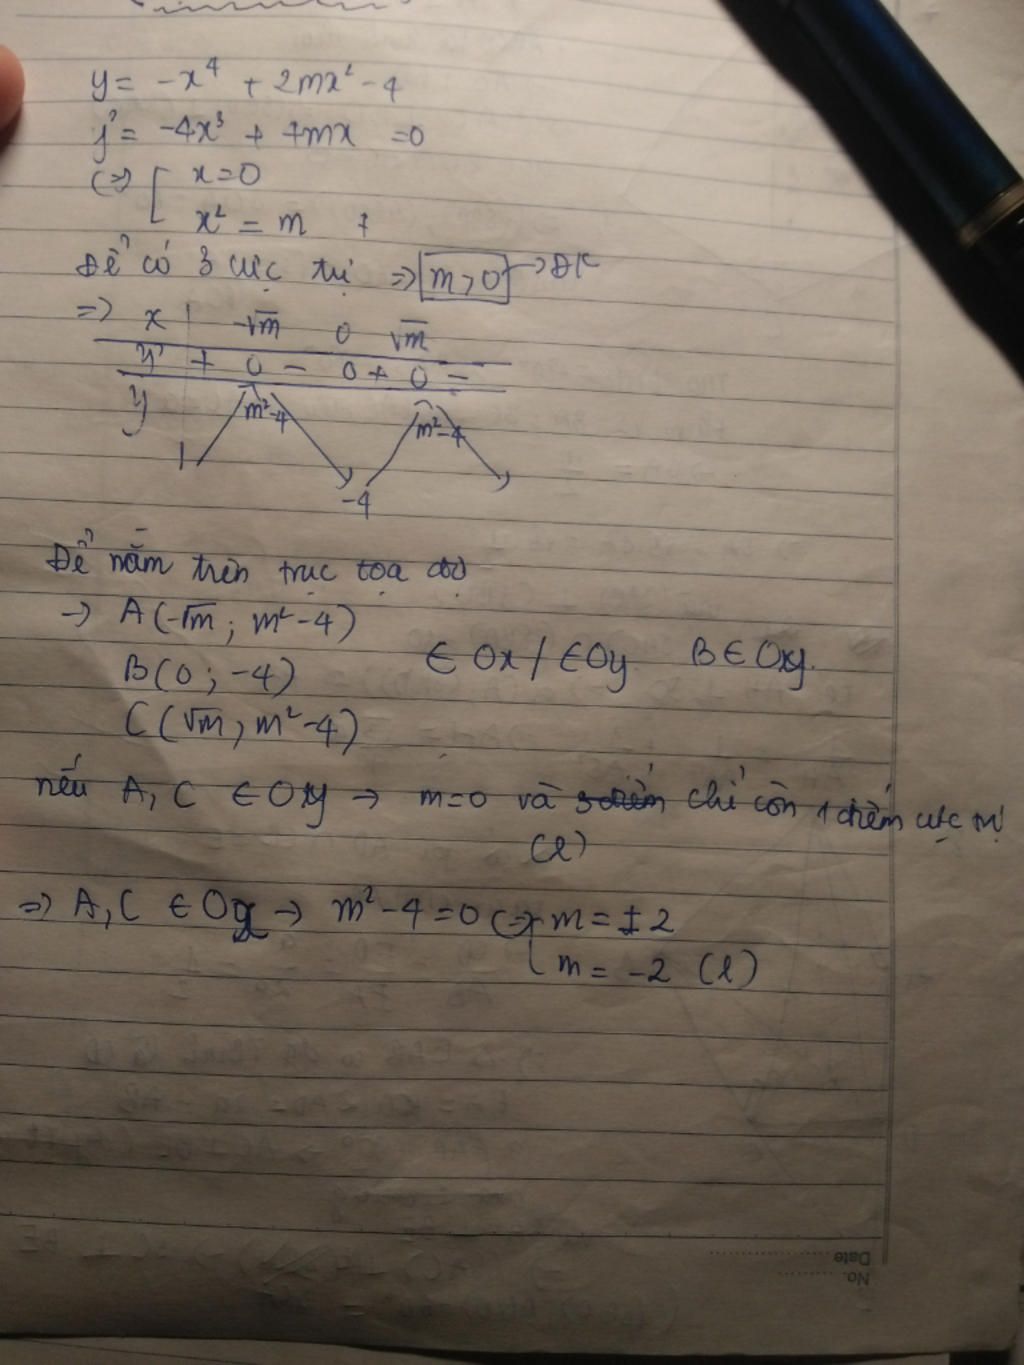 y = -x⁴ + 2mx² - 4
y' = -4x³ + 4mx = 0
(=) [ x=0
x² = m
Để có 3 cực trị => m>0 → ĐK
=> x | -√m 0 √m
y' + 0 - 0 + 0 -
y m²-4 m²-4
-4
Để nằm trên trục tọa độ
-> A(-√m; m²-4)
B(0; -4) ∈ Ox / ∈ Oy B ∈ Oxy.
C(√m; m²-4)
nếu A, C ∈ Oxy → m=0 và chỉ còn 1 điểm cực trị
(l)
=> A, C ∈ → m² - 4 = 0 (=> [ m = ± 2
m = -2 (l)
Date
No.